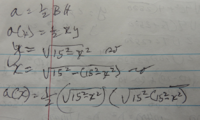 a = ½ BH
a(x) = ½ xy
y = √15²-x²
x = √15²-(15²-x²)
a(x) = ½ (√15²-x²) (√15²-(15²-x²)